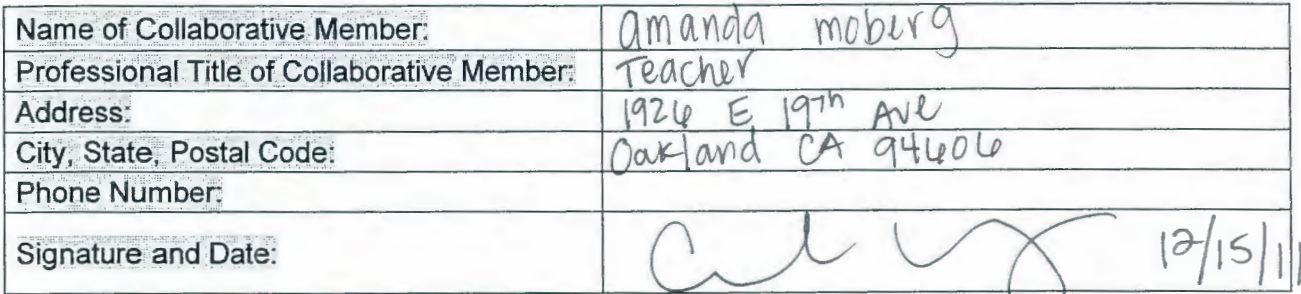 Name of Collaborative Member: amanda moberg
Professional Title of Collaborative Member: Teacher
Address: 1926 E 19th Ave
City, State, Postal Code: Oakland CA 94606
Phone Number:
Signature and Date: 12/15/11